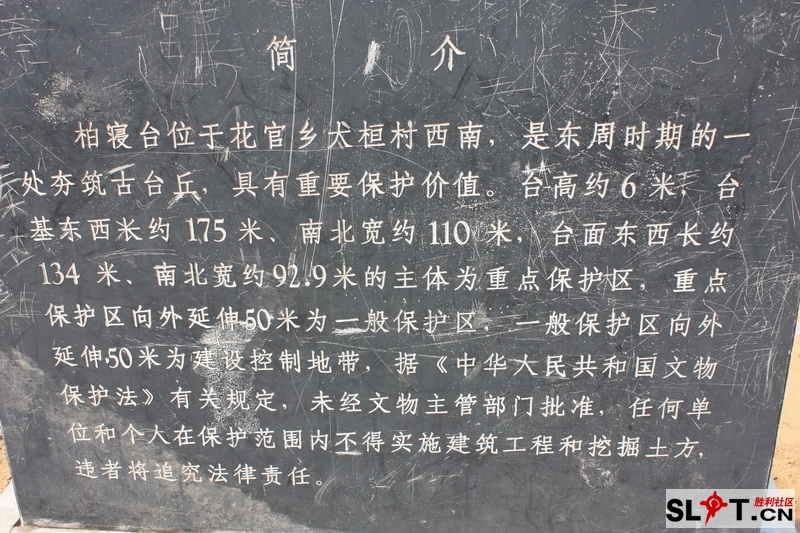 简 介
柏寝台位于花官乡大桓村西南，是东周时期的一
处夯筑古台丘，具有重要保护价值。台高约6米，台
基东西长约175米、南北宽约110米，台面东西长约
134米、南北宽约92.9米的主体为重点保护区，重点
保护区向外延伸50米为一般保护区，一般保护区向外
延伸50米为建设控制地带，据《中华人民共和国文物
保护法》有关规定，未经文物主管部门批准，任何单
位和个人在保护范围内不得实施建筑工程和挖掘土方，
违者将追究法律责任。
胜利社区
SLIT.CN